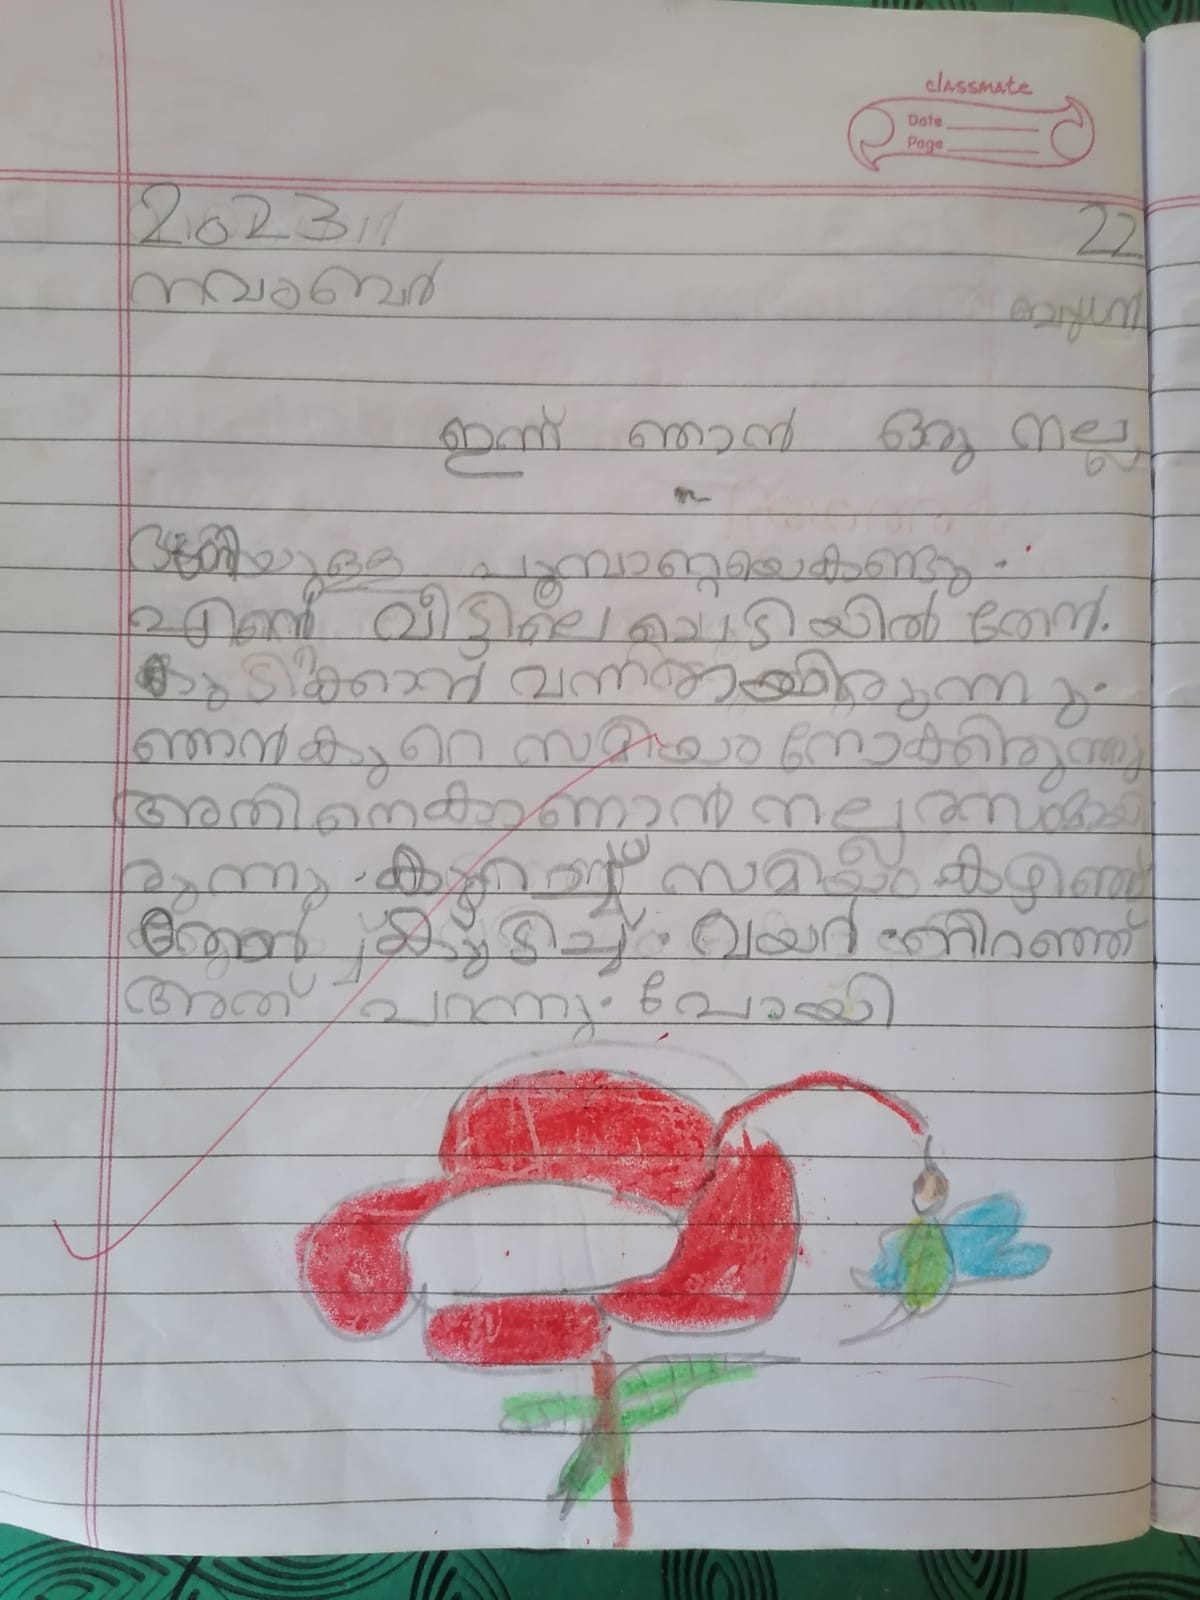 classmate
Date
Page
2023 22
നവംബർ ബുധൻ
ഇന്ന് ഞാൻ ഒരു നല്ല
ഭംഗിയുള്ള പൂമ്പാറ്റയെകണ്ടു.
എന്റെ വീട്ടിലെ ചെടിയിൽ തേൻ.
കുടിക്കാൻ വന്നതായിരുന്നു.
ഞാൻകുറെ സമിയം നോക്കിരുന്നു
അതിനെകാണാൻ നല്ല രസമായി
രുന്നു. കുറച്ച് സമിയം കഴിഞ്ഞ്
തേൻ കുടിച്ച്. വയർ നിറഞ്ഞ്
അത് പറന്നു. പോയി